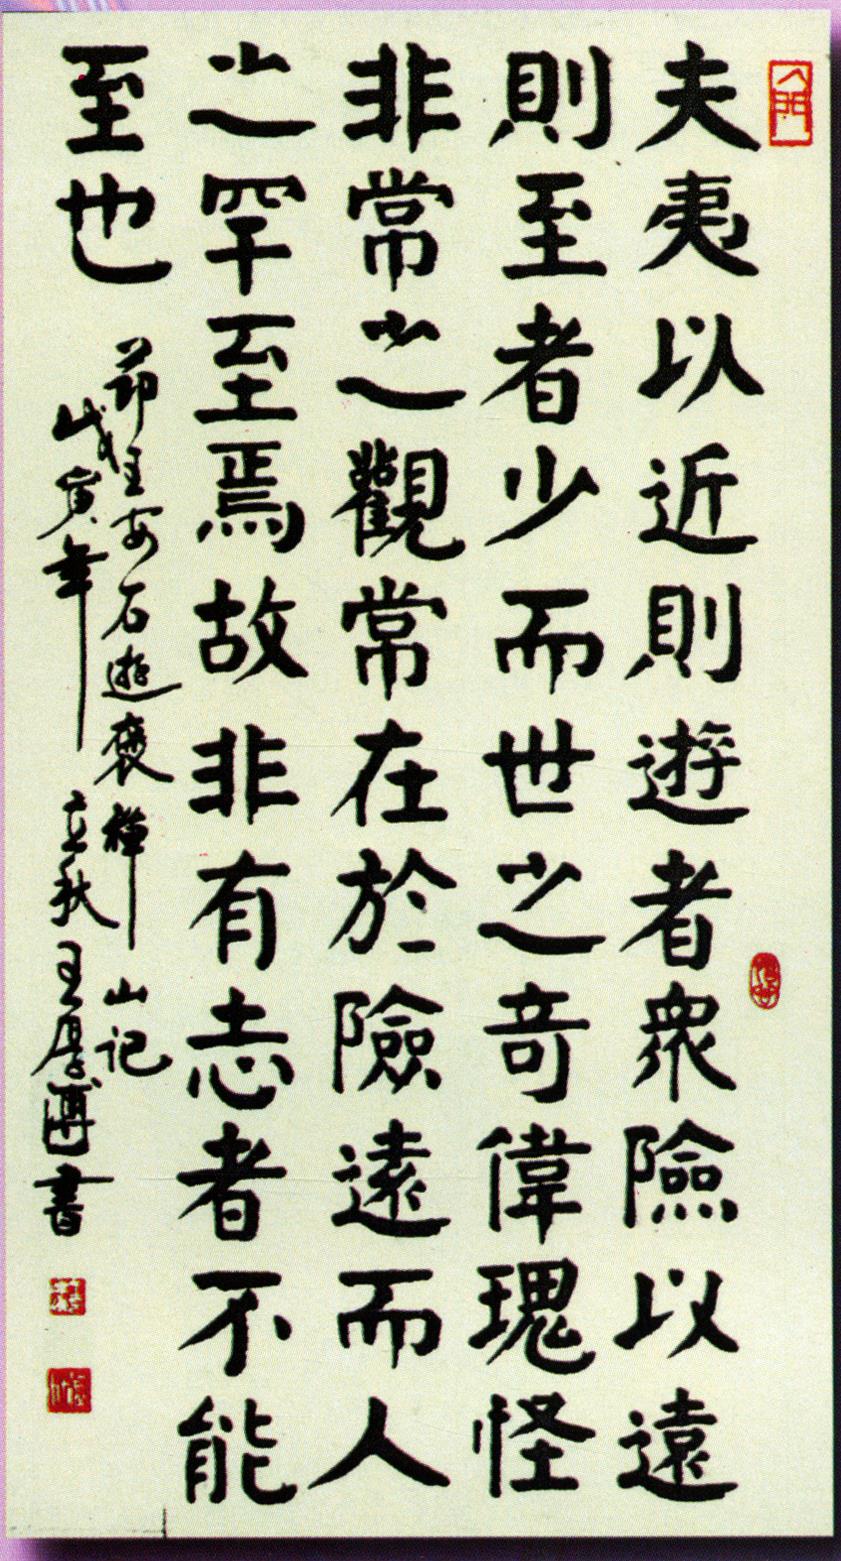 夫夷以近則遊者衆險以遠
則至者少而世之奇偉瑰怪
非常之觀常在於險遠而人
之罕至焉故非有志者不能
至也
節王安石遊褒禅山记
戊寅年立秋王厚書